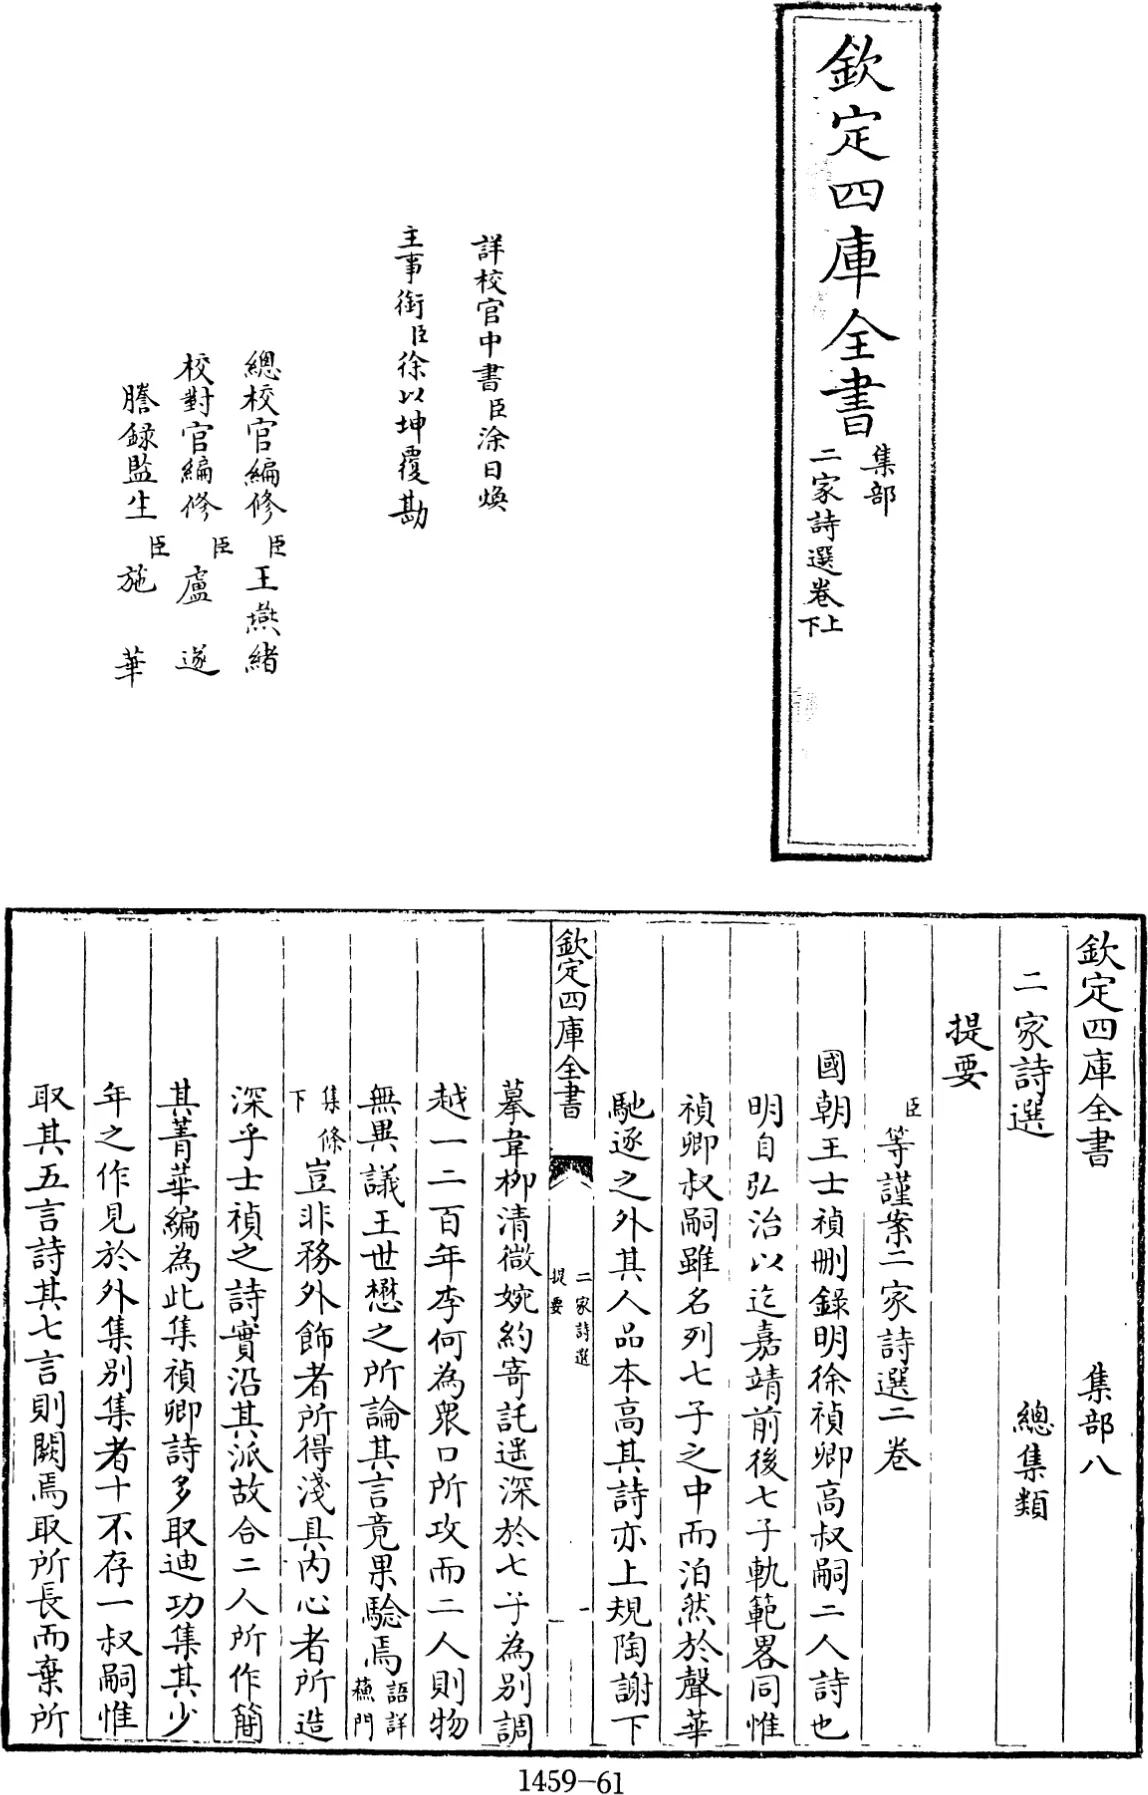 欽定四庫全書
集部
二家詩選卷上下
詳校官中書臣涂日煥
主事銜臣徐以坤覆勘
總校官編修臣王燕緒
校對官編修臣盧遂
謄錄監生臣施華
欽定四庫全書 集部八
二家詩選 總集類
提要
臣等謹案二家詩選二卷
國朝王士禎刪錄明徐禎卿高叔嗣二人詩也
明自弘治以迄嘉靖前後七子軌範畧同惟
禎卿叔嗣雖名列七子之中而泊然於聲華
馳逐之外其人品本高其詩亦上規陶謝下
欽定四庫全書 二家詩選 提要 一
摹韋柳清微婉約寄託遥深於七子為別調
越一二百年李何為衆口所攻而二人則物
無異議王世懋之所論其言竟果驗焉語詳蘓門
集條下豈非務外飾者所得淺具内心者所造
深乎士禎之詩實沿其派故合二人所作簡
其菁華編為此集禎卿詩多取迪功集其少
年之作見於外集別集者十不存一叔嗣惟
取其五言詩其七言則闕焉取所長而棄所
1459-61